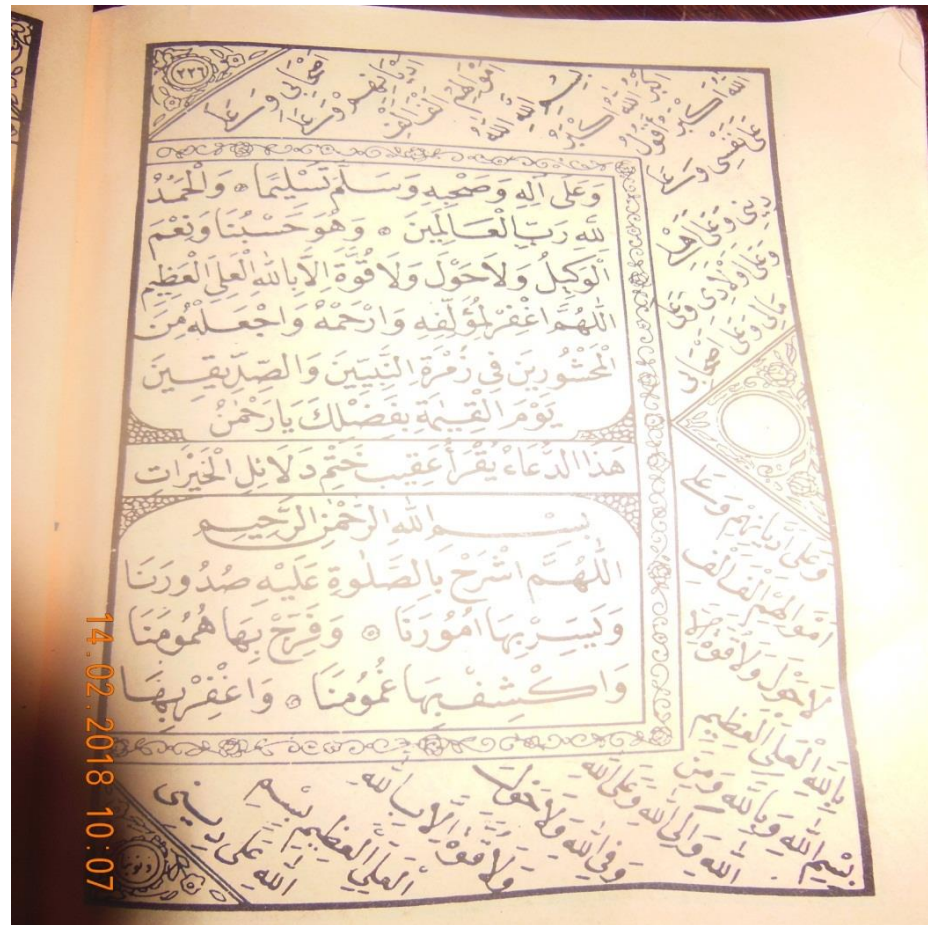 ٢٢٦
وَعَلَى آلِهِ وَصَحْبِهِ وَسَلَّمَ تَسْلِيمًا ۞ وَالْحَمْدُ
لِلّٰهِ رَبِّ الْعَالَمِينَ ۞ وَهُوَ حَسْبُنَا وَنِعْمَ
الْوَكِيلُ وَلَا حَوْلَ وَلَا قُوَّةَ إِلَّا بِاللّٰهِ الْعَلِيِّ الْعَظِيمِ
اَللّٰهُمَّ اغْفِرْ لِمُؤَلِّفِهِ وَارْحَمْهُ وَاجْعَلْهُ مِنَ
الْمَحْشُورِينَ فِي زُمْرَةِ النَّبِيِّينَ وَالصِّدِّيقِينَ
يَوْمَ الْقِيٰمَةِ بِفَضْلِكَ يَا رَحْمٰنُ
هَذَا الدُّعَاءُ يُقْرَأُ عَقِيبَ خَتْمِ دَلَائِلِ الْخَيْرَاتِ
بِسْمِ اللّٰهِ الرَّحْمٰنِ الرَّحِيمِ
اَللّٰهُمَّ اشْرَحْ بِالصَّلٰوةِ عَلَيْهِ صُدُورَنَا
وَيَسِّرْ بِهَا أُمُورَنَا ۞ وَفَرِّجْ بِهَا هُمُومَنَا
وَاكْشِفْ بِهَا غُمُومَنَا ۞ وَاغْفِرْ بِهَا
بِسْمِ اللّٰهِ اللّٰهُ
أَكْبَرُ اللّٰهُ أَكْبَرُ
اللّٰهُ أَكْبَرُ أَقُولُ
عَلَى نَفْسِي وَعَلَى
دِينِي وَعَلَى أَهْلِي
وَعَلَى أَوْلَادِي وَعَلَى
مَالِي وَعَلَى أَصْحَابِي
وَعَلَى أَدْيَانِهِمْ وَعَلَى
أَمْوَالِهِمْ أَلْفَ أَلْفِ
لَا حَوْلَ وَلَا قُوَّةَ إِلَّا
بِاللّٰهِ الْعَلِيِّ الْعَظِيمِ
بِسْمِ اللّٰهِ وَبِاللّٰهِ وَمِنَ
اللّٰهِ وَإِلَى اللّٰهِ وَعَلَى اللّٰهِ
وَفِي اللّٰهِ وَلَا حَوْلَ
وَلَا قُوَّةَ إِلَّا بِاللّٰهِ
الْعَلِيِّ الْعَظِيمِ بِسْمِ
اللّٰهِ عَلَى دِينِي
14.02.2018 10:07